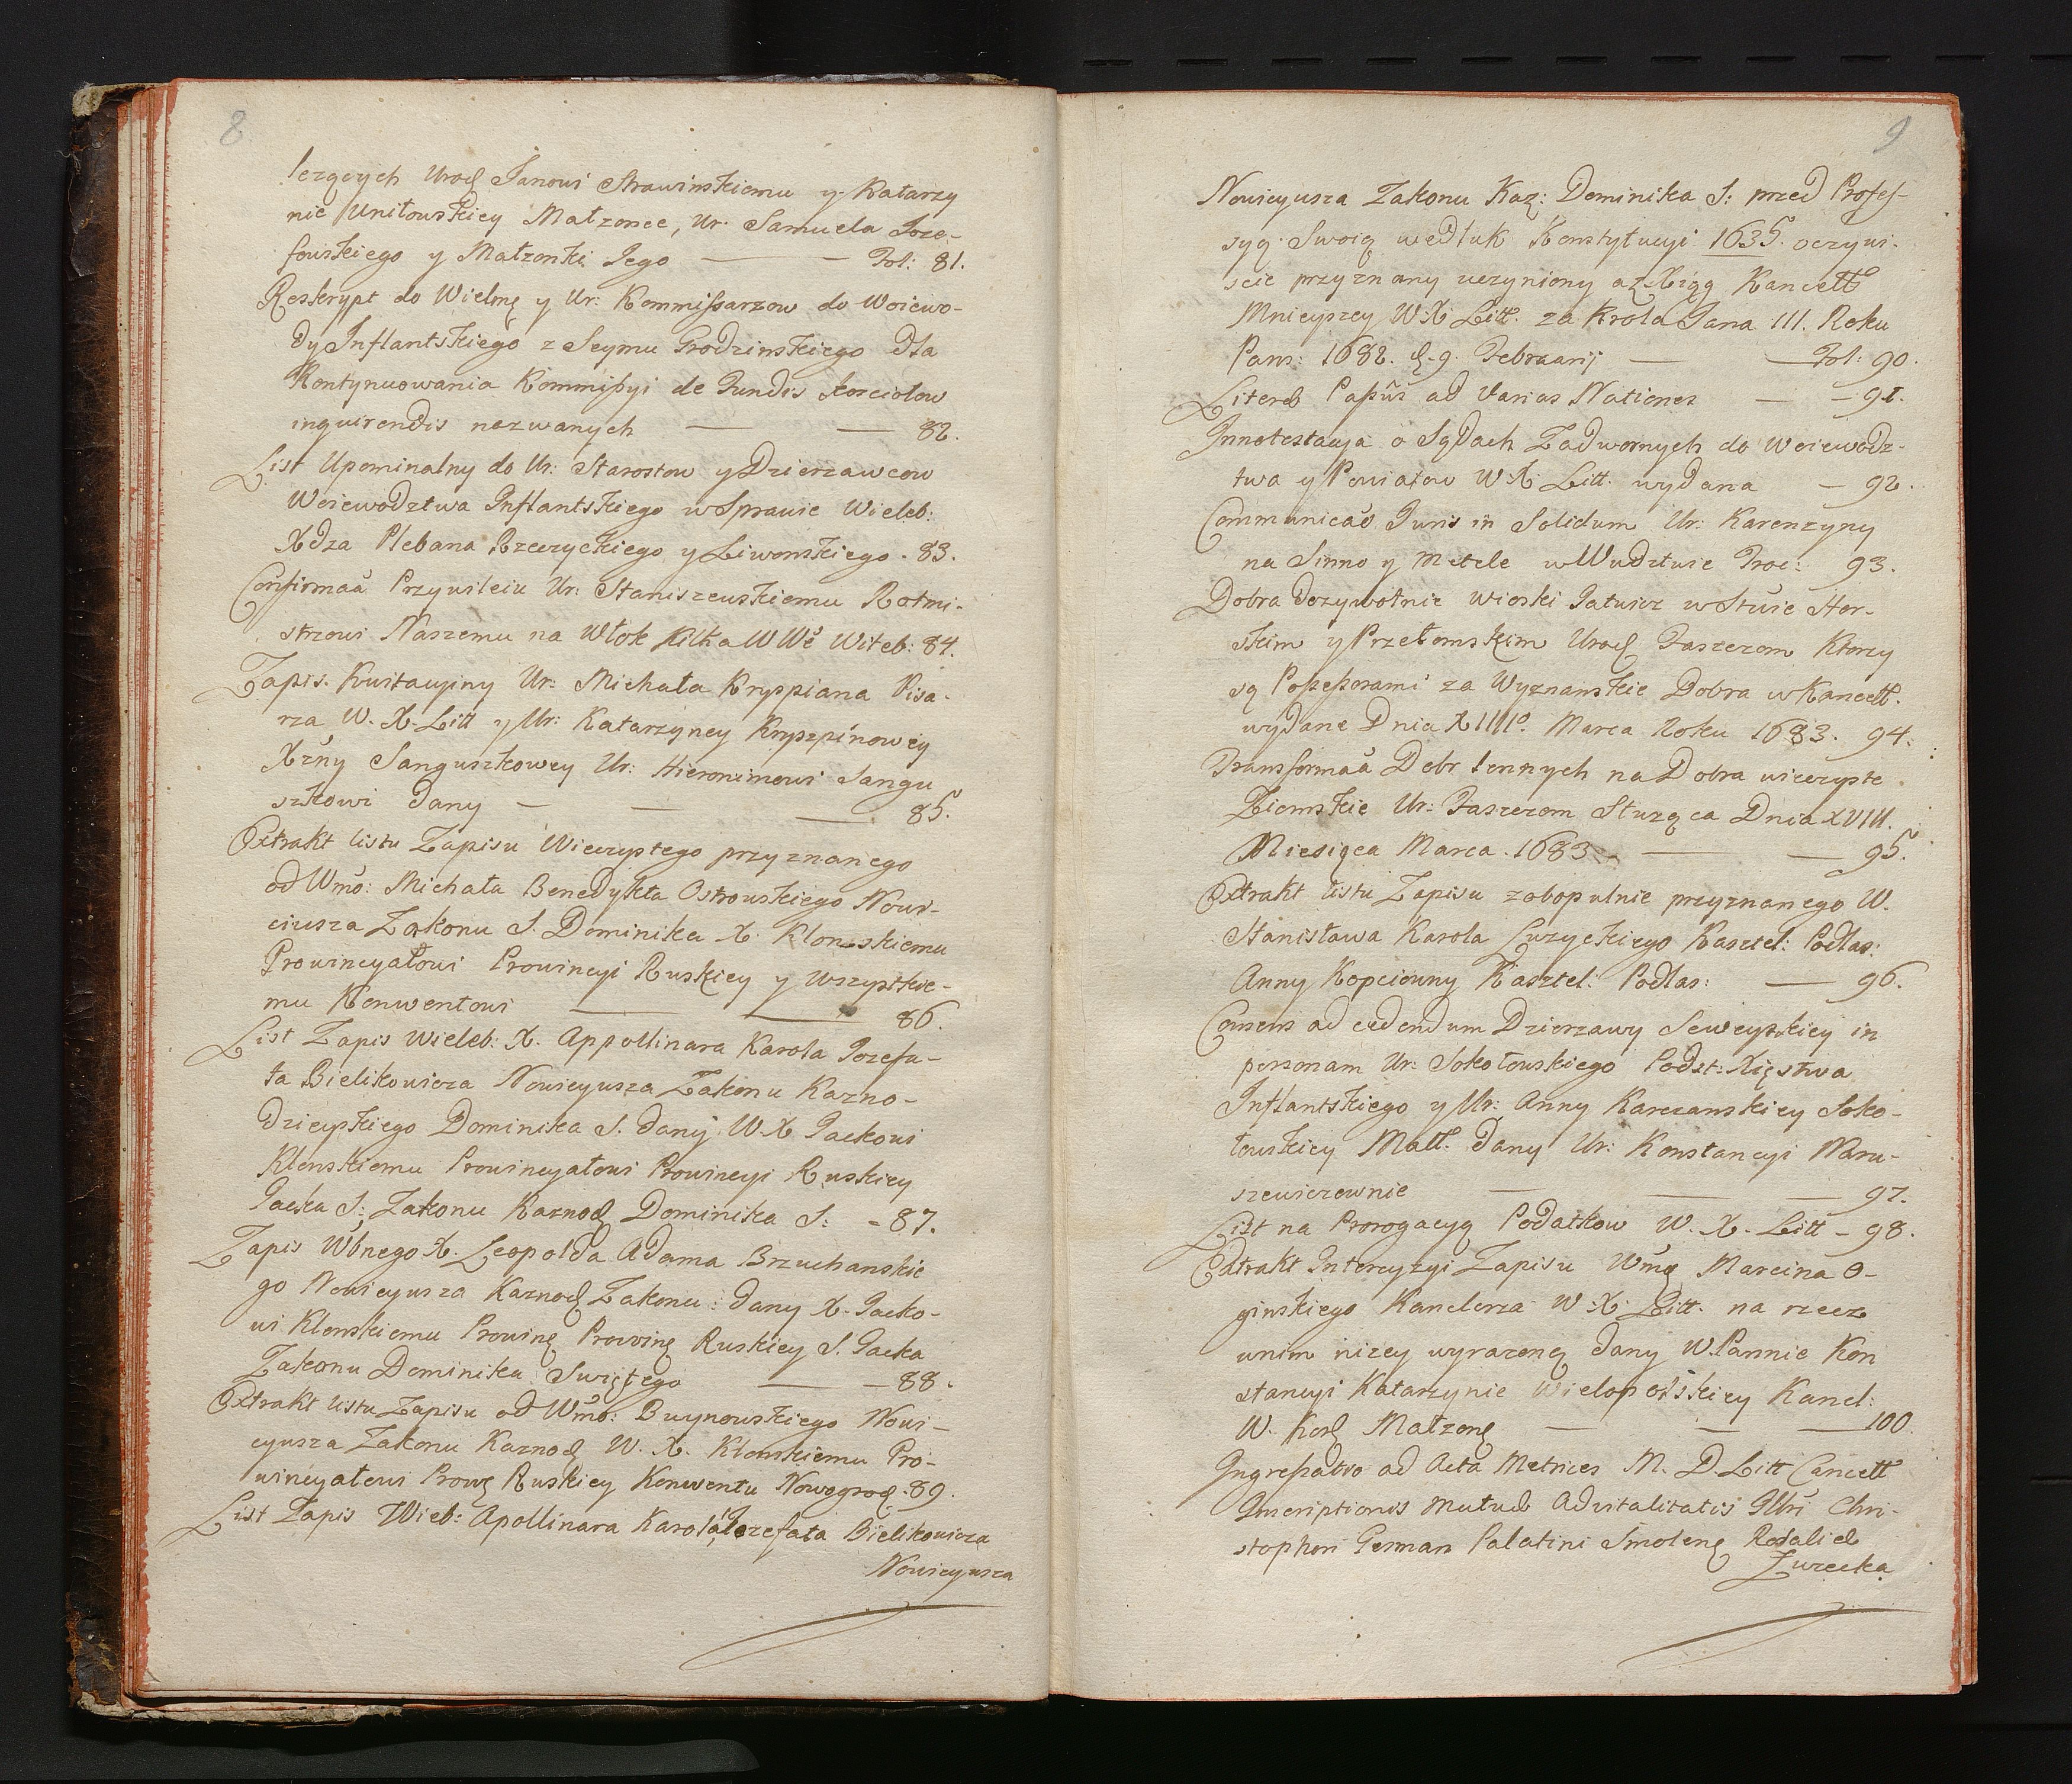 8
lezących Urod Janowi Strawinskiemu y Katarzy
nie Uniłowskiey Małzonce, Ur. Samuela Joze-
fowskiego y Małzonki Jego — — Fol: 81.
Reskrypt do Wielmę y Ur: Kommissarzow do Woiewo-
dy Inflantskiego z Seymu Grodzinskiego dla
Kontynuowania Kommissyi de Fundis Kosciołow
inquirendis nazwanych — — 82.
List Upominalny do Ur: Starostow y Dzierzawcow
Woiewodztwa Inflantskiego w Sprawie Wieleb:
Xdza Plebana Rzeczyckiego y Liwonskiego. 83.
Confirmaã Przywileiu Ur: Staniszewskiemu Rotmi-
strzowi Naszemu na Włok Kilka W Wě Witeb: 84.
Zapis Kwitacyiny Ur: Michała Kryppiana Pisa-
rza W. X. Litt y Ur: Katarzyney Kryszpinowey
Xzny Sanguszkowey Ur: Hieronimowi Sangu
szkowi dany — — — 85.
Extrakt listu Zapisu Wieczystego przyznanego
od Wmo: Michała Benedykta Ostrowskiego Nowi-
ciusza Zakonu S. Dominika X. Klonskiemu
Prowincyałowi Prowincyi Ruskiey y Wszystkie-
mu Konwentowi — — 86.
List Zapis Wieleb: X. Appollinara Karola Jozefa-
ta Bielikowicza Nowicyusza Zakonu Kazno-
dzieyskiego Dominika S. dany W. X Jackowi
Klonskiemu Prowincyałowi Prowincyi Ruskiey
Jacka S: Zakonu Kaznod Dominika S: - 87.
Zapis Wbnego X. Leopolda Adama Brzuchanskie
go Nowicyusza Kaznod Zakonu: dany X. Jacko-
wi Klonskiemu Prowinę Prowinę Ruskiey S. Jacka
Zakonu Dominika Swiętego — — 88.
Extrakt listu Zapisu od Wmo: Buynowskiego Nowi-
cyusza Zakonu Kaznod W. X. Klonskiemu Pro-
wincyałowi Prowę Ruskiey Konwentu Nowogrod. 89.
List Zapis Wieb: Apollinara Karola Jozefata Bielikowicza
Nowicyusza
9
Nowicyusza Zakonu Kaz: Dominika S: przed Profes-
syą Swoią wedłuk Konstytucyi 1635. oczywi-
scie przyznany uczyniony az Xiąg Kancell
Mnieyszey W. X Litt. za Krola Jana III. Roku
Pans: 1682. d. 9. Februarij — — Fol: 90.
Litereb Passus ad Varias Nationes — - 91.
Innotestacya o Sądach Zadwornych do Woiewodz-
twa y Powiatow W. X. Litt. wydana — 92.
Communicaõ Juris in Solidum Ur: Karenzyny
na Sinno y Metele w Wudztwie Troc: 93.
Dobra dozywotnie Wioski Jatwisz w Stwie Hor-
skim y Przełomskim Urod Faszczom Ktorzy
są Possessorami za Wyznanskie Dobra w Kancell.
wydane Dnia XIIII°. Marca Roku 1683. 94.
Transformaã Dobr lennych na Dobra wieczyste
Ziemskie Ur: Faszczom Słuząca Dnia XVIII.
Miesiąca Marca. 1683. — — 95.
Extrakt listu Zapisu zobopulnie przyznanego W.
Stanisława Karola Łuzyckiego Kasztel: Podlas:
Anny Kopciowny Kasztel: Podlas: — 96.
Consens ad cedendum Dzierzawy Seweyskiey in
personam Ur: Sokołowskiego Podst: Xięstwa
Inflantskiego y Ur: Anny Karczanskiey Soko-
łowskiey Małł. dany Ur: Konstancyi Naru-
szewiczewnie — — — 97.
List na Prorogacyą Podatkow W. X. Litt - 98.
Extrakt Intercyzyi Zapisu Wmę Marcina O-
ginskiego Kanclerza W. X. Litt. na rzecz
wnim nizey wyrazoną dany W. Pannie Kon
stancyi Katarzynie Wielopolskiey Kancl:
W. Kor Małzonę — — — 100.
Ingressatio ad Acta Metrices M. D. Litt Cancell
Inscriptionis mutueb Advitalitatis Illri Chri-
stophori German Palatini Smolenę Rosalieb
Zurecka